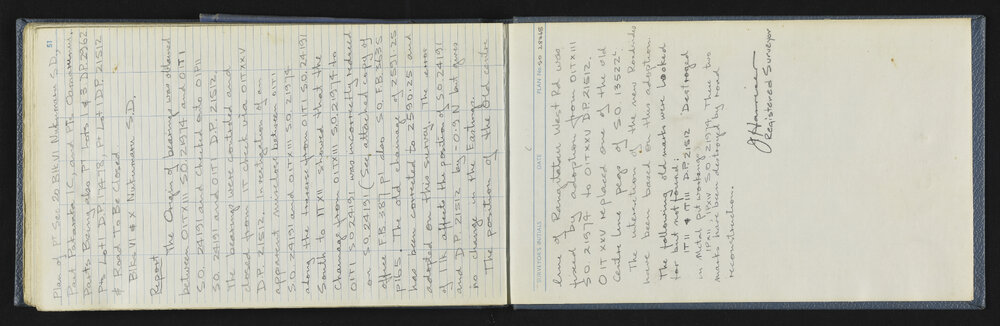 51
Plan of Pt Sec 20 Blk VI Nukumaru S.D.,
Part Pakaraka 1C, and Pth Omaru
Parts Being also Pt Lots 1 & 3 D.P. 2962
Pts Lot 1 D.P. 17478, Pt Lot 1 D.P. 21512
& Road To Be Closed
Blks VI & X Nukumaru S.D.
Report
The Origin of bearings was obtained
between O.IT XIII S.O. 21974 and O.IT I
S.O. 24191 and checked onto O.IP II
S.O. 24191 and O.IT I D.P. 21512
The bearings were controlled and
closed from IT which via O.IT XXV
D.P. 21512. An investigation of an
apparent misclose between O.IT I
S.O. 24191 and O.IT XIII S.O. 21974
along the traverse from O.IT I S.O. 24191
South to IT XII showed that the
Chainage from O.IT XIII S.O. 21974 to
O.IT I S.O. 24191 was incorrectly reduced
on S.O. 24191 (See attached copy of
office F.B. 387 p1 also S.O. F.B. 5635
p 165). The old chainage of 2591.25
has been corrected to 2590.25 and
adopted on this survey. The error
of 1 lk affects the position of S.O. 24191
and D.P. 21512 by -0.9 N but gives
no change in the Eastings.
The position of the Old center
SURVEYOR'S INITIALS
DATE
PLAN NO SO 28268
line of Rangitatau West Rd was
fixed by adoption from O.IT XIII
S.O. 21974 to O.IT XXV D.P. 21512
O.IT XXV replaced one of the old
Centre line pegs of S.O. 13522.
The intersection of the new Roadlines
have been based on this adoption.
The following old marks were looked
for but not found:
IT II & IT III D.P. 21512 Destroyed
in Metal pit workings.
IP XII IT XV S.O. 21974 These two
marks have been destroyed by road
reconstruction.
Registered Surveyor